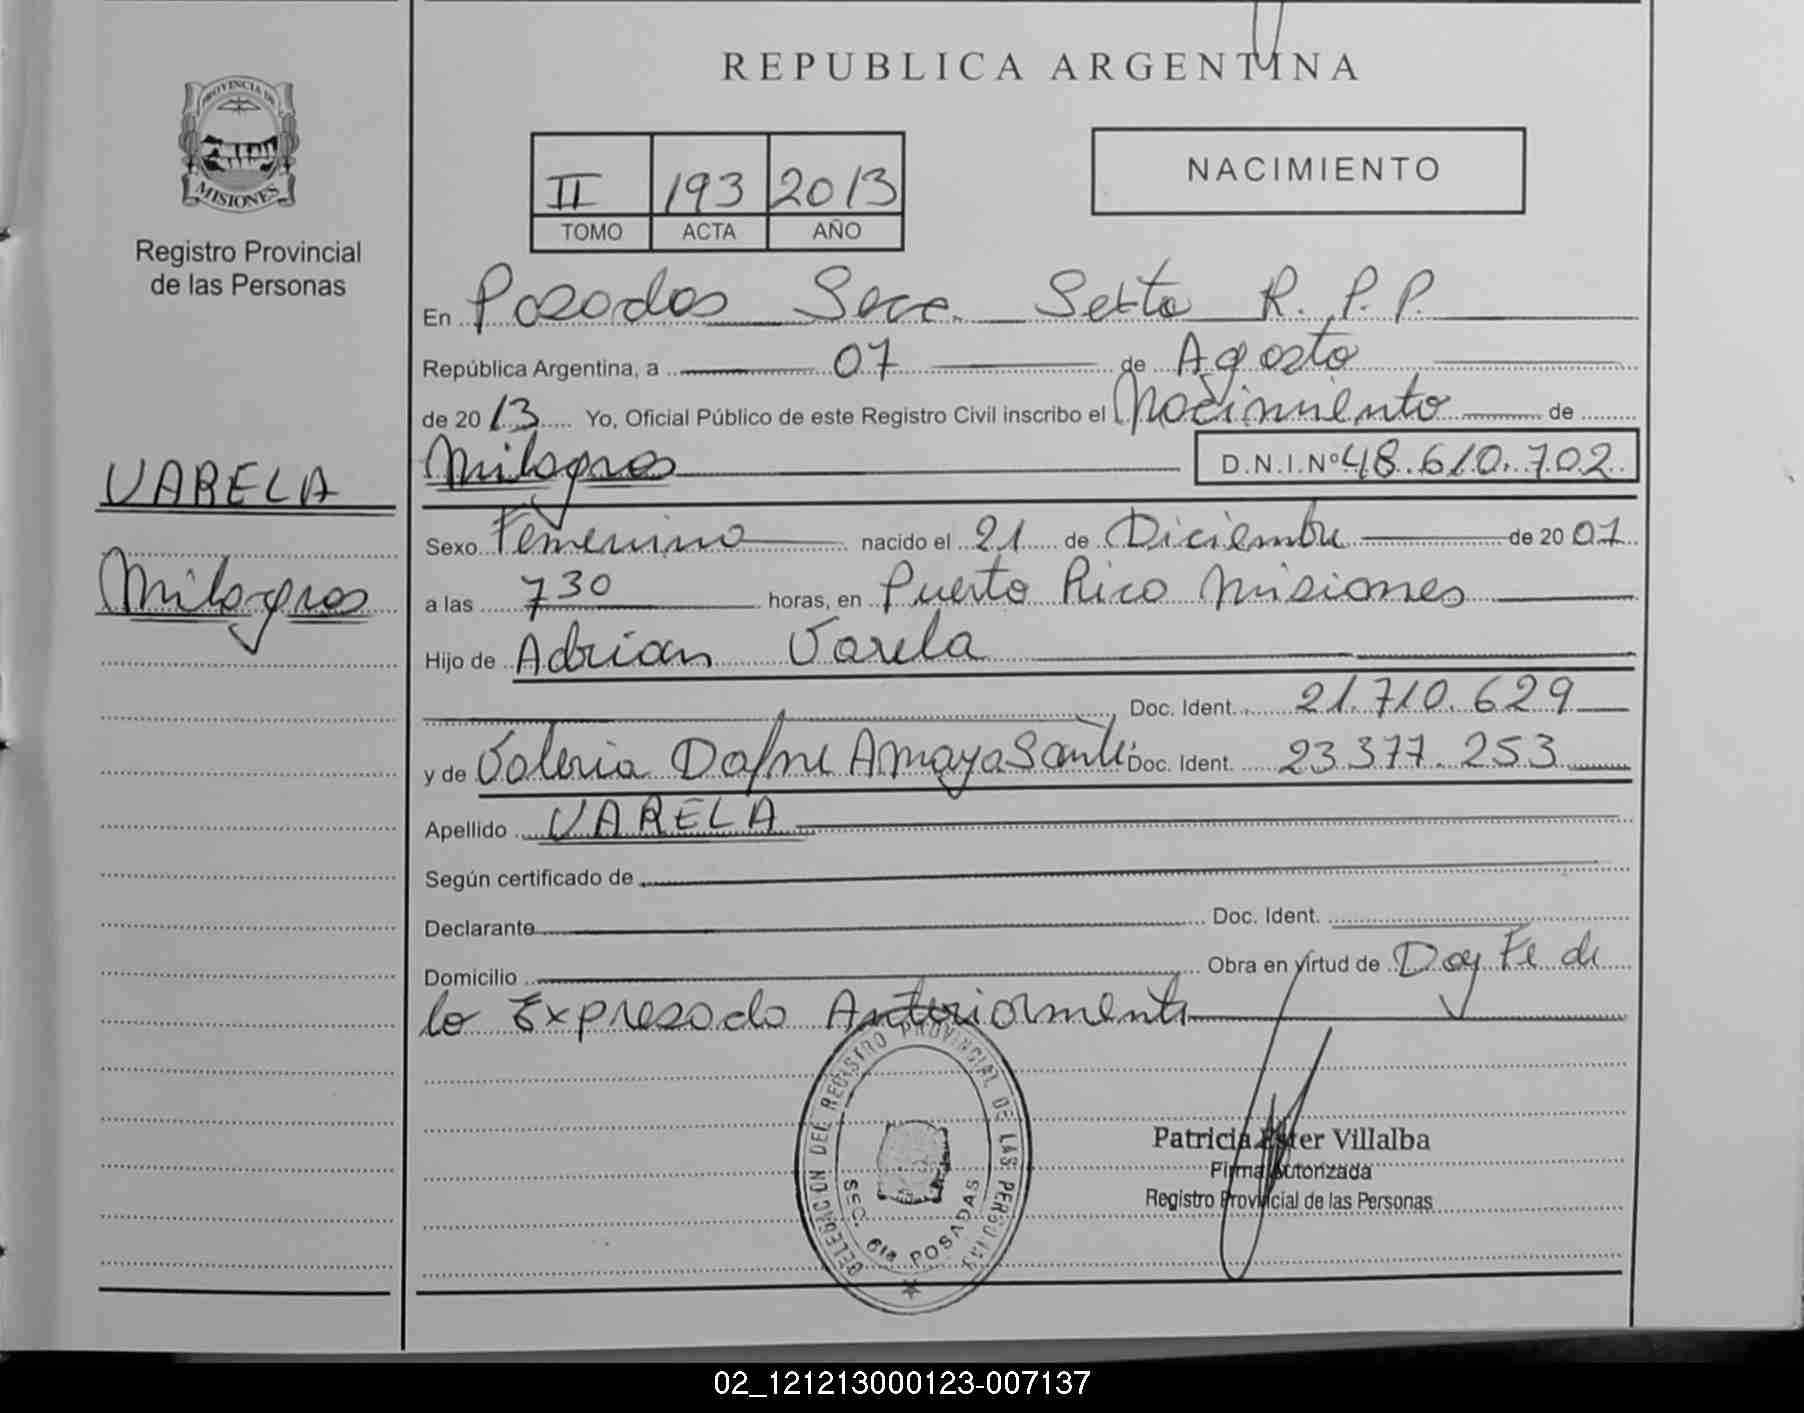 REPUBLICA ARGENTINA
PROVINCIA DE
MISIONES
Registro Provincial
de las Personas
II 193 2013
TOMO ACTA AÑO
NACIMIENTO
En Posadas Secc. Sexta R. P. P.
República Argentina, a 07 de Agosto
de 2013 Yo, Oficial Público de este Registro Civil inscribo el Nacimiento de
Milagros D.N.I.Nº 48.610.702
VARELA
Milagros
Sexo Femenino nacido el 21 de Diciembre de 2007
a las 730 horas, en Puerto Rico Misiones
Hijo de Adrian Varela
Doc. Ident. 21.710.629
y de Valeria Dafne Amaya Doc. Ident. 23.377.253
Apellido VARELA
Según certificado de
Declarante Doc. Ident.
Domicilio Obra en virtud de Doy Fe de
lo Expresado Anteriormente
DELEGACION DEL REGISTRO PROVINCIAL DE LAS PERSONAS
SEC. 6ta. POSADAS
Patricia Ester Villalba
Firma Autorizada
Registro Provincial de las Personas
02_121213000123-007137